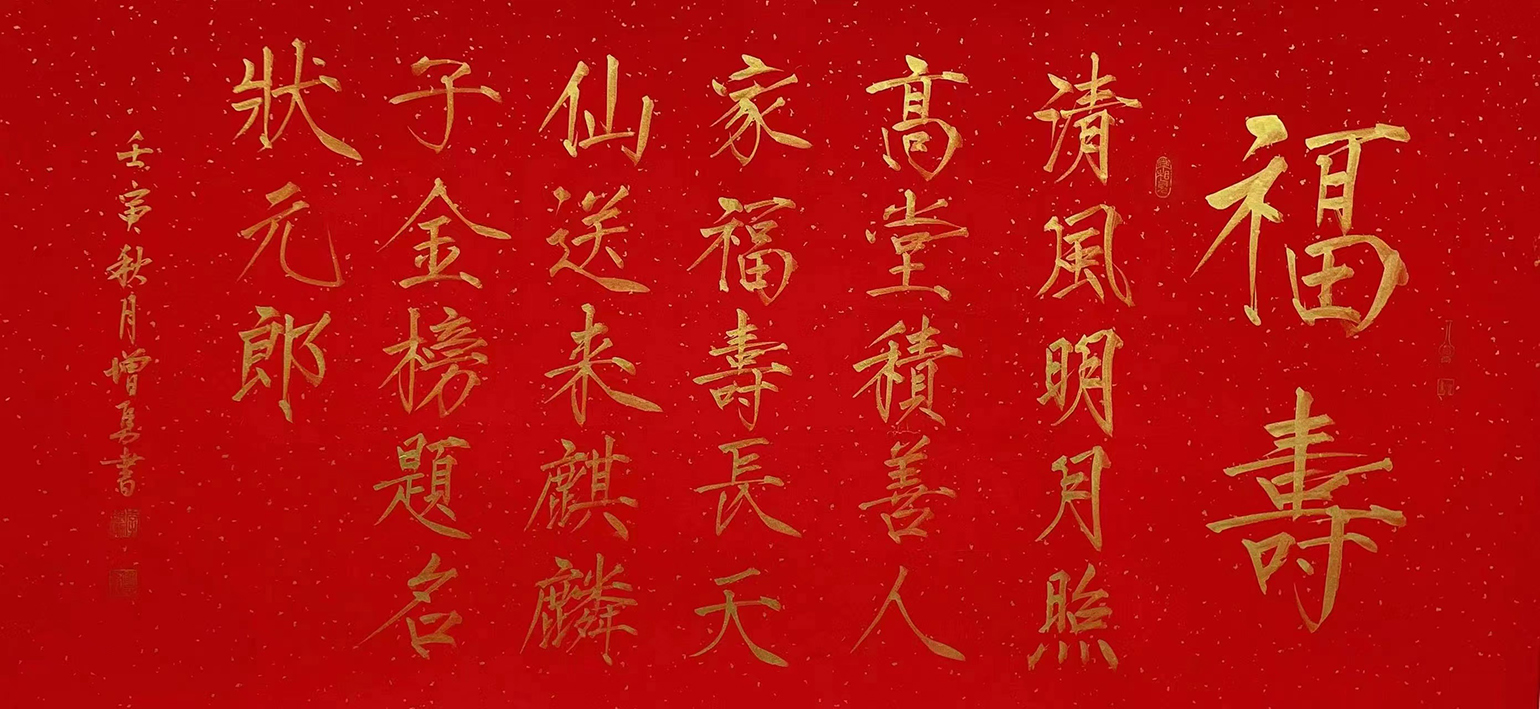 福壽
清風明月照
高堂積善人
家福壽長天
仙送来麒麟
子金榜題名
狀元郎
壬寅秋月增勇書